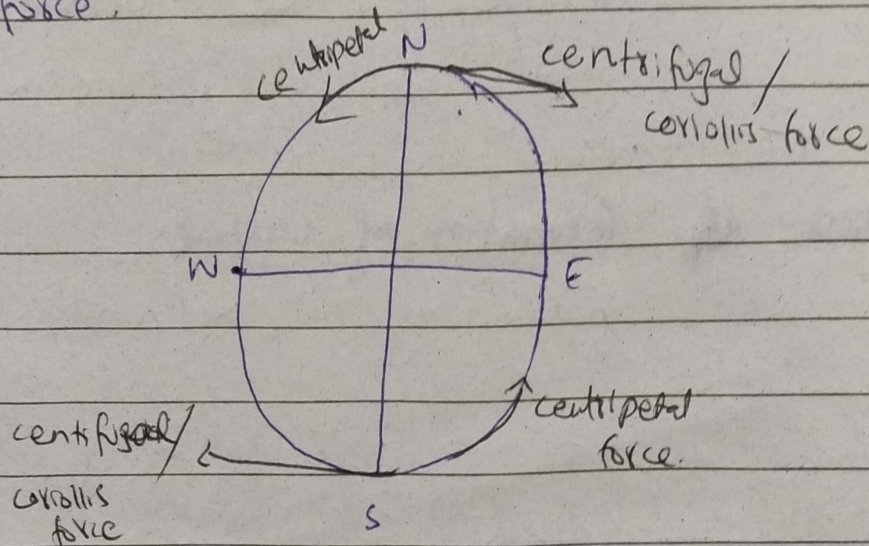 force.
centripetal
N
centrifugal /
coriollis force
W
E
centripetal
force.
centifugal/
coriollis
force
S